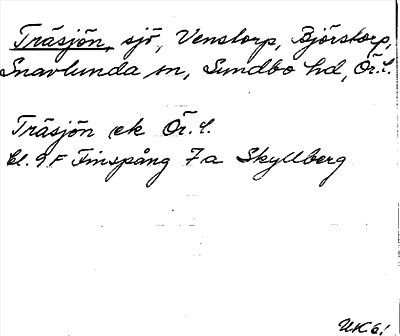 Träsjön, sjö, Venstorp, Björstorp,
Snavlunda sn, Sundbo hd, Ör. l.
Träsjön ek Ör. l.
bl. 9 F Finspång 7a Skyllberg
UK 61